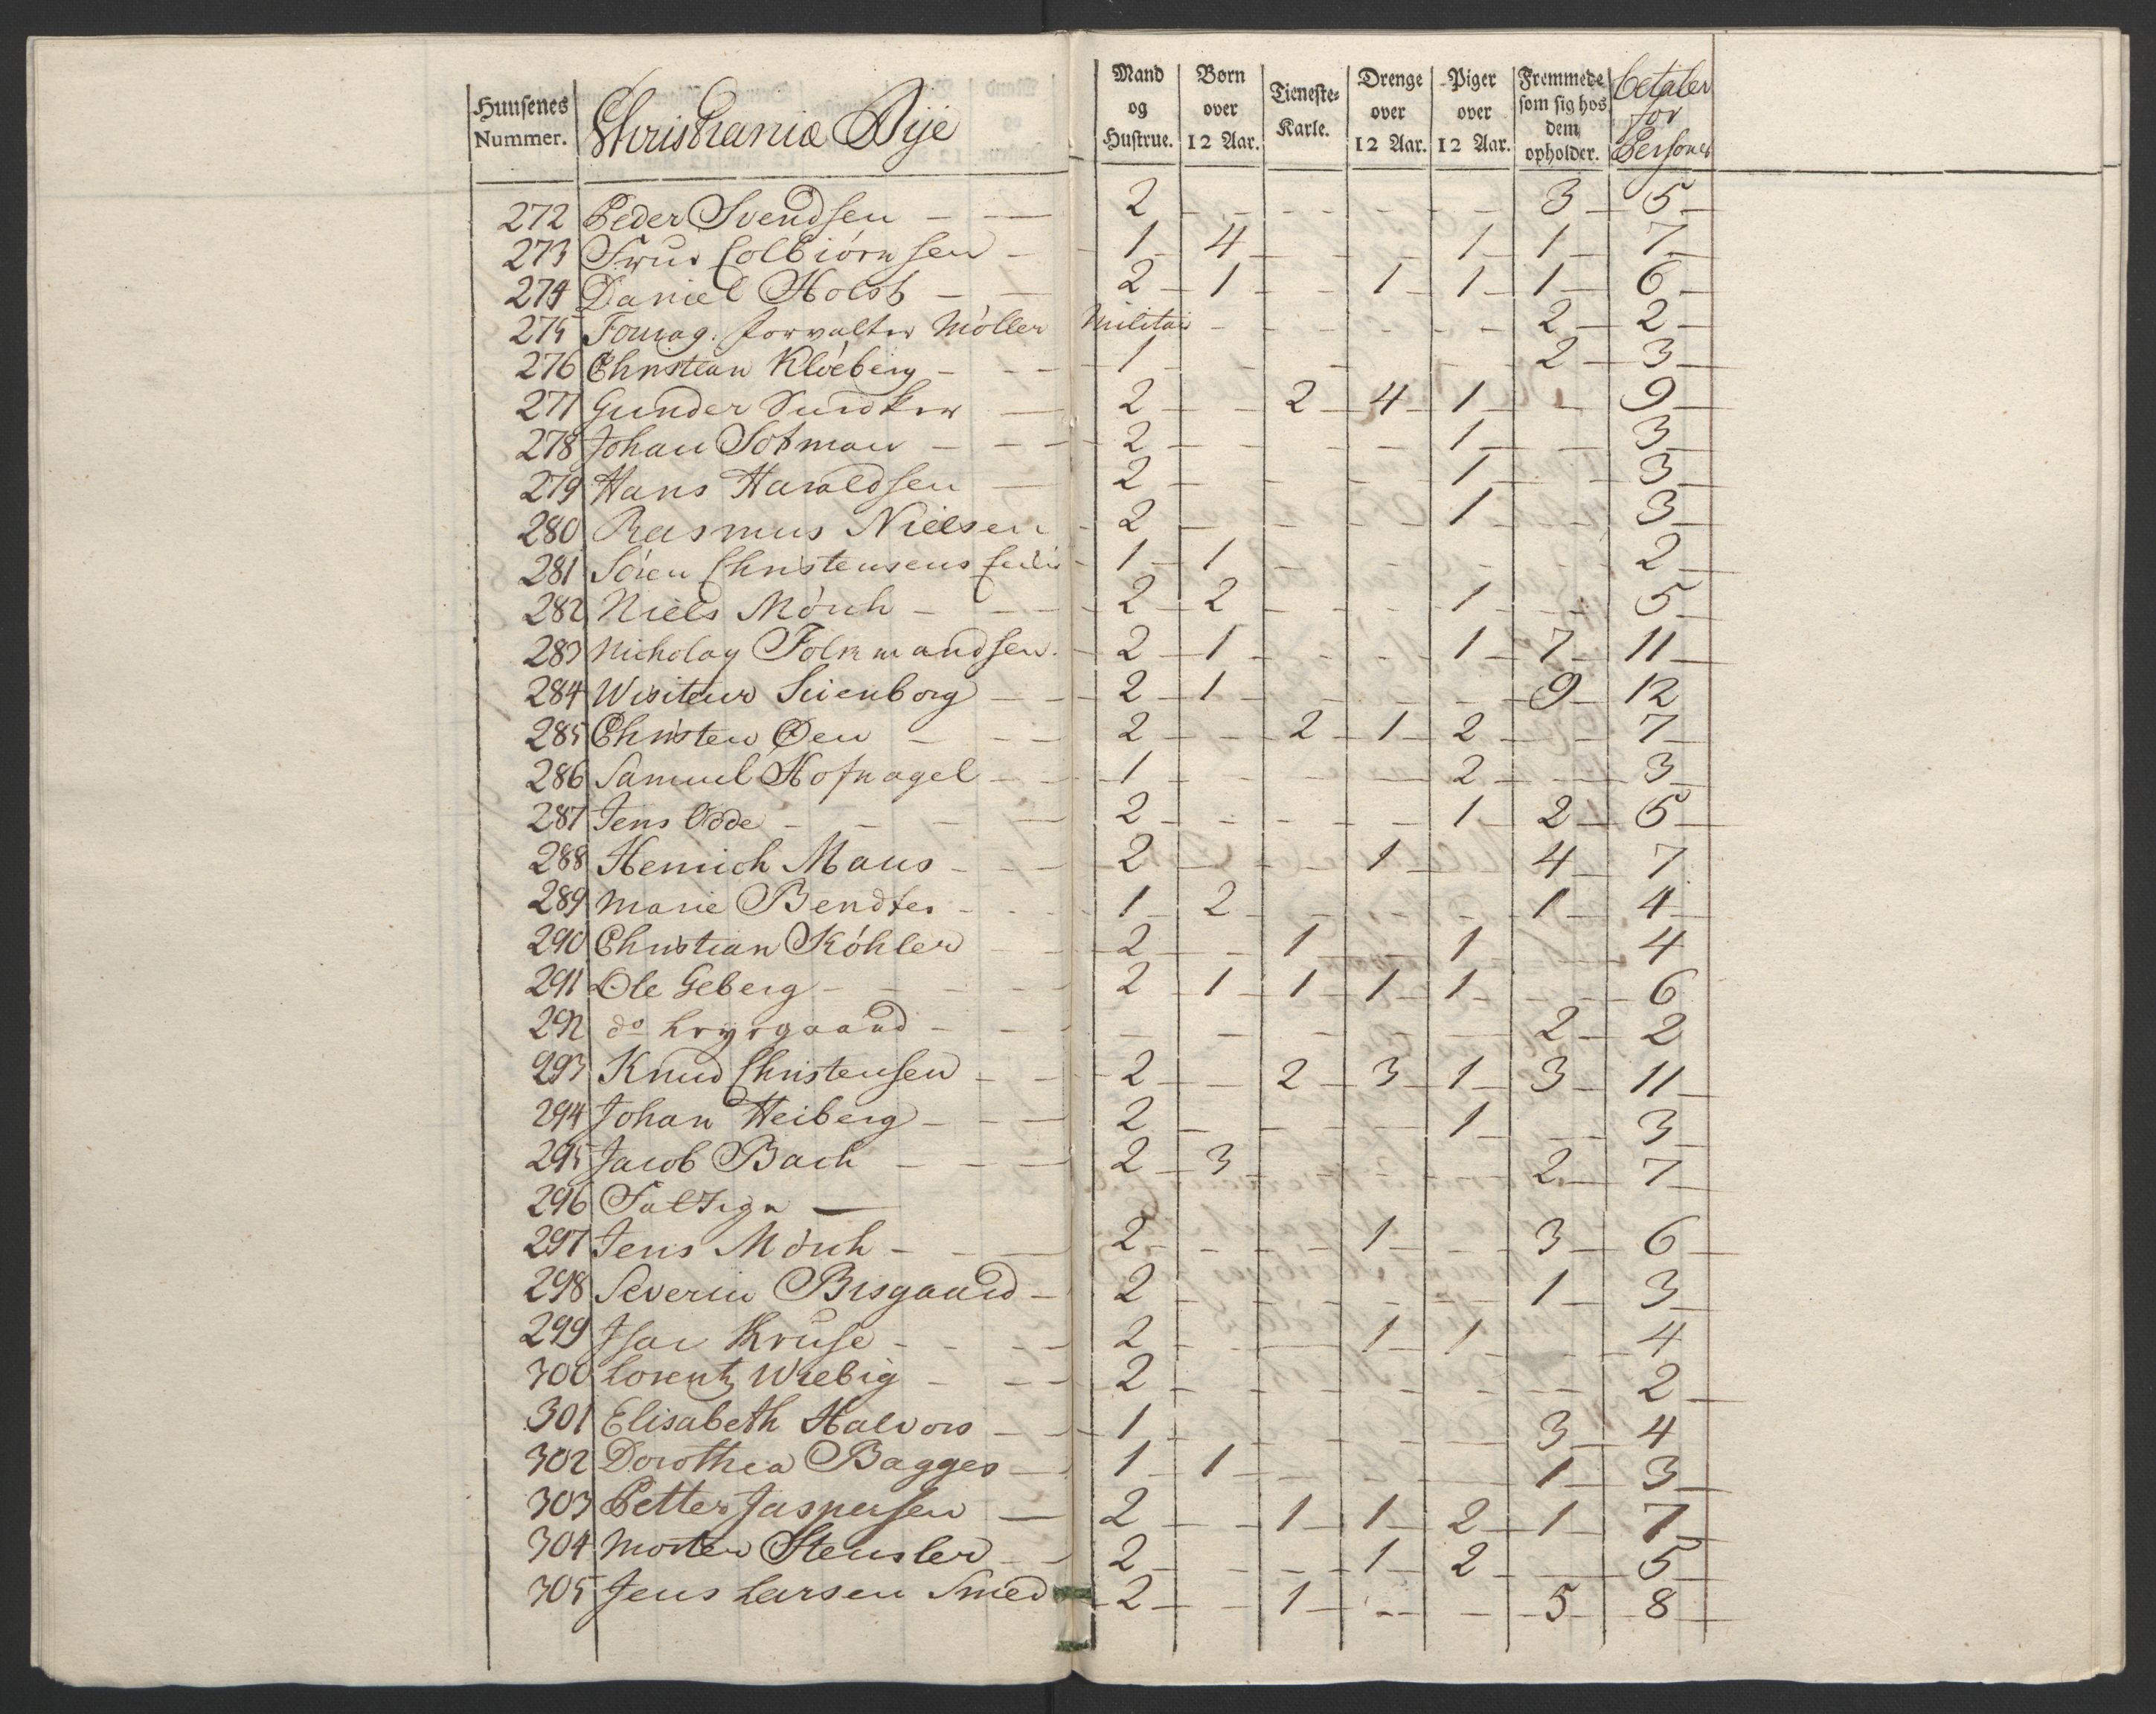 Huusenes Nummer. Christiania Bye Mand og Hustrue. Børn over 12 Aar. Tieneste-Karle. Drenge over 12 Aar. Piger over 12 Aar. Fremmede som sig hos dem opholder. betaler for Personer
272 Peder Svendsen - - 2 - - - - - - 3 - 5 -
273 Frue Colbiørnsen - 1 - 4 - - - 1 - 1 - 7 -
274 Daniel Holst - - 2 - 1 - - 1 - 1 - 1 - 6 -
275 Fourag. forvalter Møller Militair - - - - - - 2 - 2 -
276 Christian Kløeberg - - - 1 - - - - 2 - 3 -
277 Gunder - 2 - - 2 - 4 - 1 - - 9 -
278 Johan Sotman - - - 2 - - - - 1 - - 3 -
279 Hans Haraldsen - 2 - - - - 1 - - 3 -
280 Rasmus Nielsen - 2 - - - - 1 - - 3 -
281 Søren Christensens - 1 - 1 - - - - - 2 -
282 Niels Mörch - - - 2 - 2 - - - 1 - - 5 -
283 Nicholay Folkmandsen - 2 - 1 - - - 1 - 7 - 11 -
284 Wisiteur Suenborg - - 2 - 1 - - - - 9 - 12
285 Christen Øen - - - 2 - - 2 - 1 - 2 - - 7 -
286 Samuel Hofnagel - - 1 - - - - 2 - - 3 -
287 Jens Odde - - - - 2 - - - - 1 - 2 - 5 -
288 Henrich Maus - - - 2 - - - 1 4 - 7 -
289 Marie Bendtes - - - 1 - 2 - - - - 1 - 4 -
290 Christian Köhler - - 2 - - 1 - 1 - - 4
291 Ole Geberg - - - - 2 - 1 - 1 - 1 - 1 - - - 6
292 do - - - - - - - - 2 - 2
293 Knud Christensen - - 2 - - 2 - 3 - 1 - 3 - 11 -
294 Johan Heiberg - - - 2 - - - - 1 - - 3 -
295 Jacob Bach - - - 2 - 3 - - - - 2 - 7 -
296 Fattige -
297 Jens Mörch - - - 2 - - - - 1 - - - 3 - 6 -
298 Severin Bisgaard - 2 - - - - - - 1 - 3 -
299 Isac Kruse - - - - 2 - - - 1 - 1 - - 4 -
300 Lorentz Wiebig - - - 2 - - - - - - 2 -
301 Elisabeth Halvors - - 1 - - - - - 3 - 4
302 Dorothea Bagges - 1 - 1 - - - - 1 - 3 -
303 Petter Jaspersen - 2 - - 1 - 1 - 2 - 1 - 7 -
304 Morten Stensler - - 2 - - - - 1 - 2 - - 5 -
305 Jens Larsen Smed - 2 - - 1 - - - - 5 - 8 -